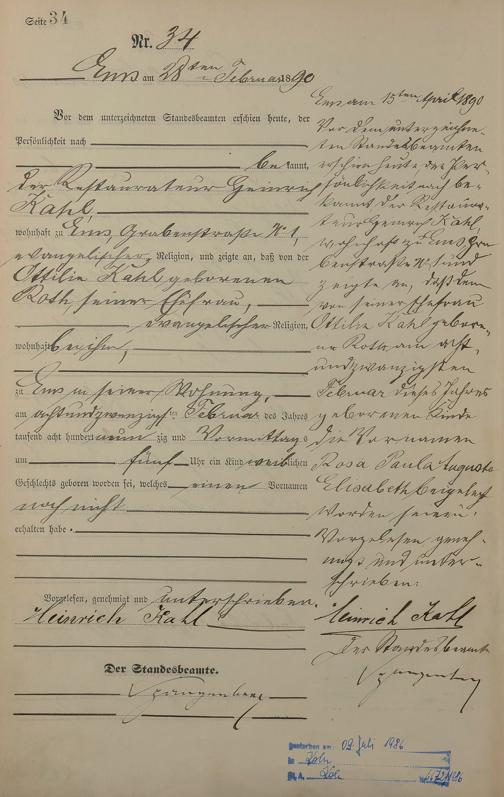 Seite 34
Nr. 34
Ems am 28ten Februar 1890
Vor dem unterzeichneten Standesbeamten erschien heute, der
Persönlichkeit nach
bekannt,
der Restaurateur Heinrich
Kahl,
wohnhaft zu Ems, Grabenstraße No 1,
evangelischer Religion, und zeigte an, daß von der
Ottilie Kahl geborenen
Roth, seiner Ehefrau,
evangelischer Religion,
wohnhaft bei ihm,
zu Ems in seiner Wohnung,
am achtundzwanzigsten Februar des Jahres
tausend acht hundert neunzig und Vormittags
um fünf Uhr ein Kind weiblichen
Geschlechts geboren worden sei, welches einen Vornamen
noch nicht
erhalten habe.
Vorgelesen, genehmigt und unterschrieben.
Heinrich Kahl
Der Standesbeamte.
Spangenberg
Ems am 15ten April 1890
Vor dem unterzeichne-
ten Standesbeamten
erschien heute, der Per-
sönlichkeit nach be-
kannt der Restaura-
teur Heinrich Kahl,
wohnhaft zu Ems Gra-
benstraße No 1 und
zeigte an, daß dem
von seiner Ehefrau
Ottilie Kahl gebore-
ne Roth, am acht-
undzwanzigsten
Februar dieses Jahres
geborenen Kinde
die Vornamen
Rosa Paula Auguste
Elisabeth beigelegt
worden seien.
Vorgelesen geneh-
migt und unter-
schrieben:
Heinrich Kahl
Der Standesbeamte
Spangenberg
Gestorben am: 09. Juli 1986
in Köln
St.A. Köln